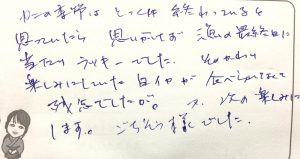 カニの季節は とっくに 終わっていると
思っていたら 思いがけず 漁の最終日に
当たり ラッキーでした。
楽しみにしていた 白イカ が 食べられなくて
残念でしたが、 又、次の楽しみに
します。 ごちそう様でした。